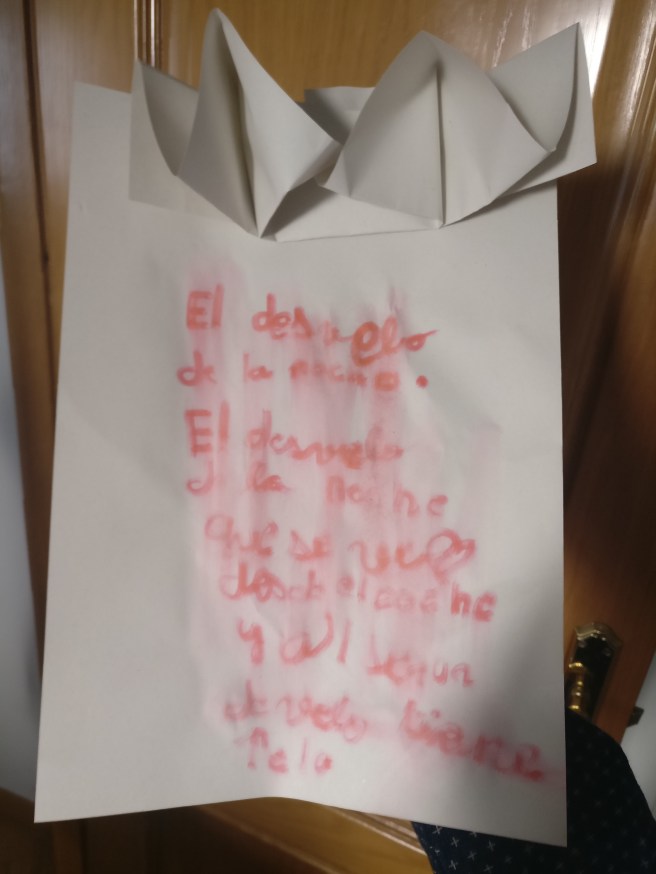 El desvelo
de la noche.
El desvelo
de la noche
que se ve
desde el coche
y al
desvelo tiene
Pelo